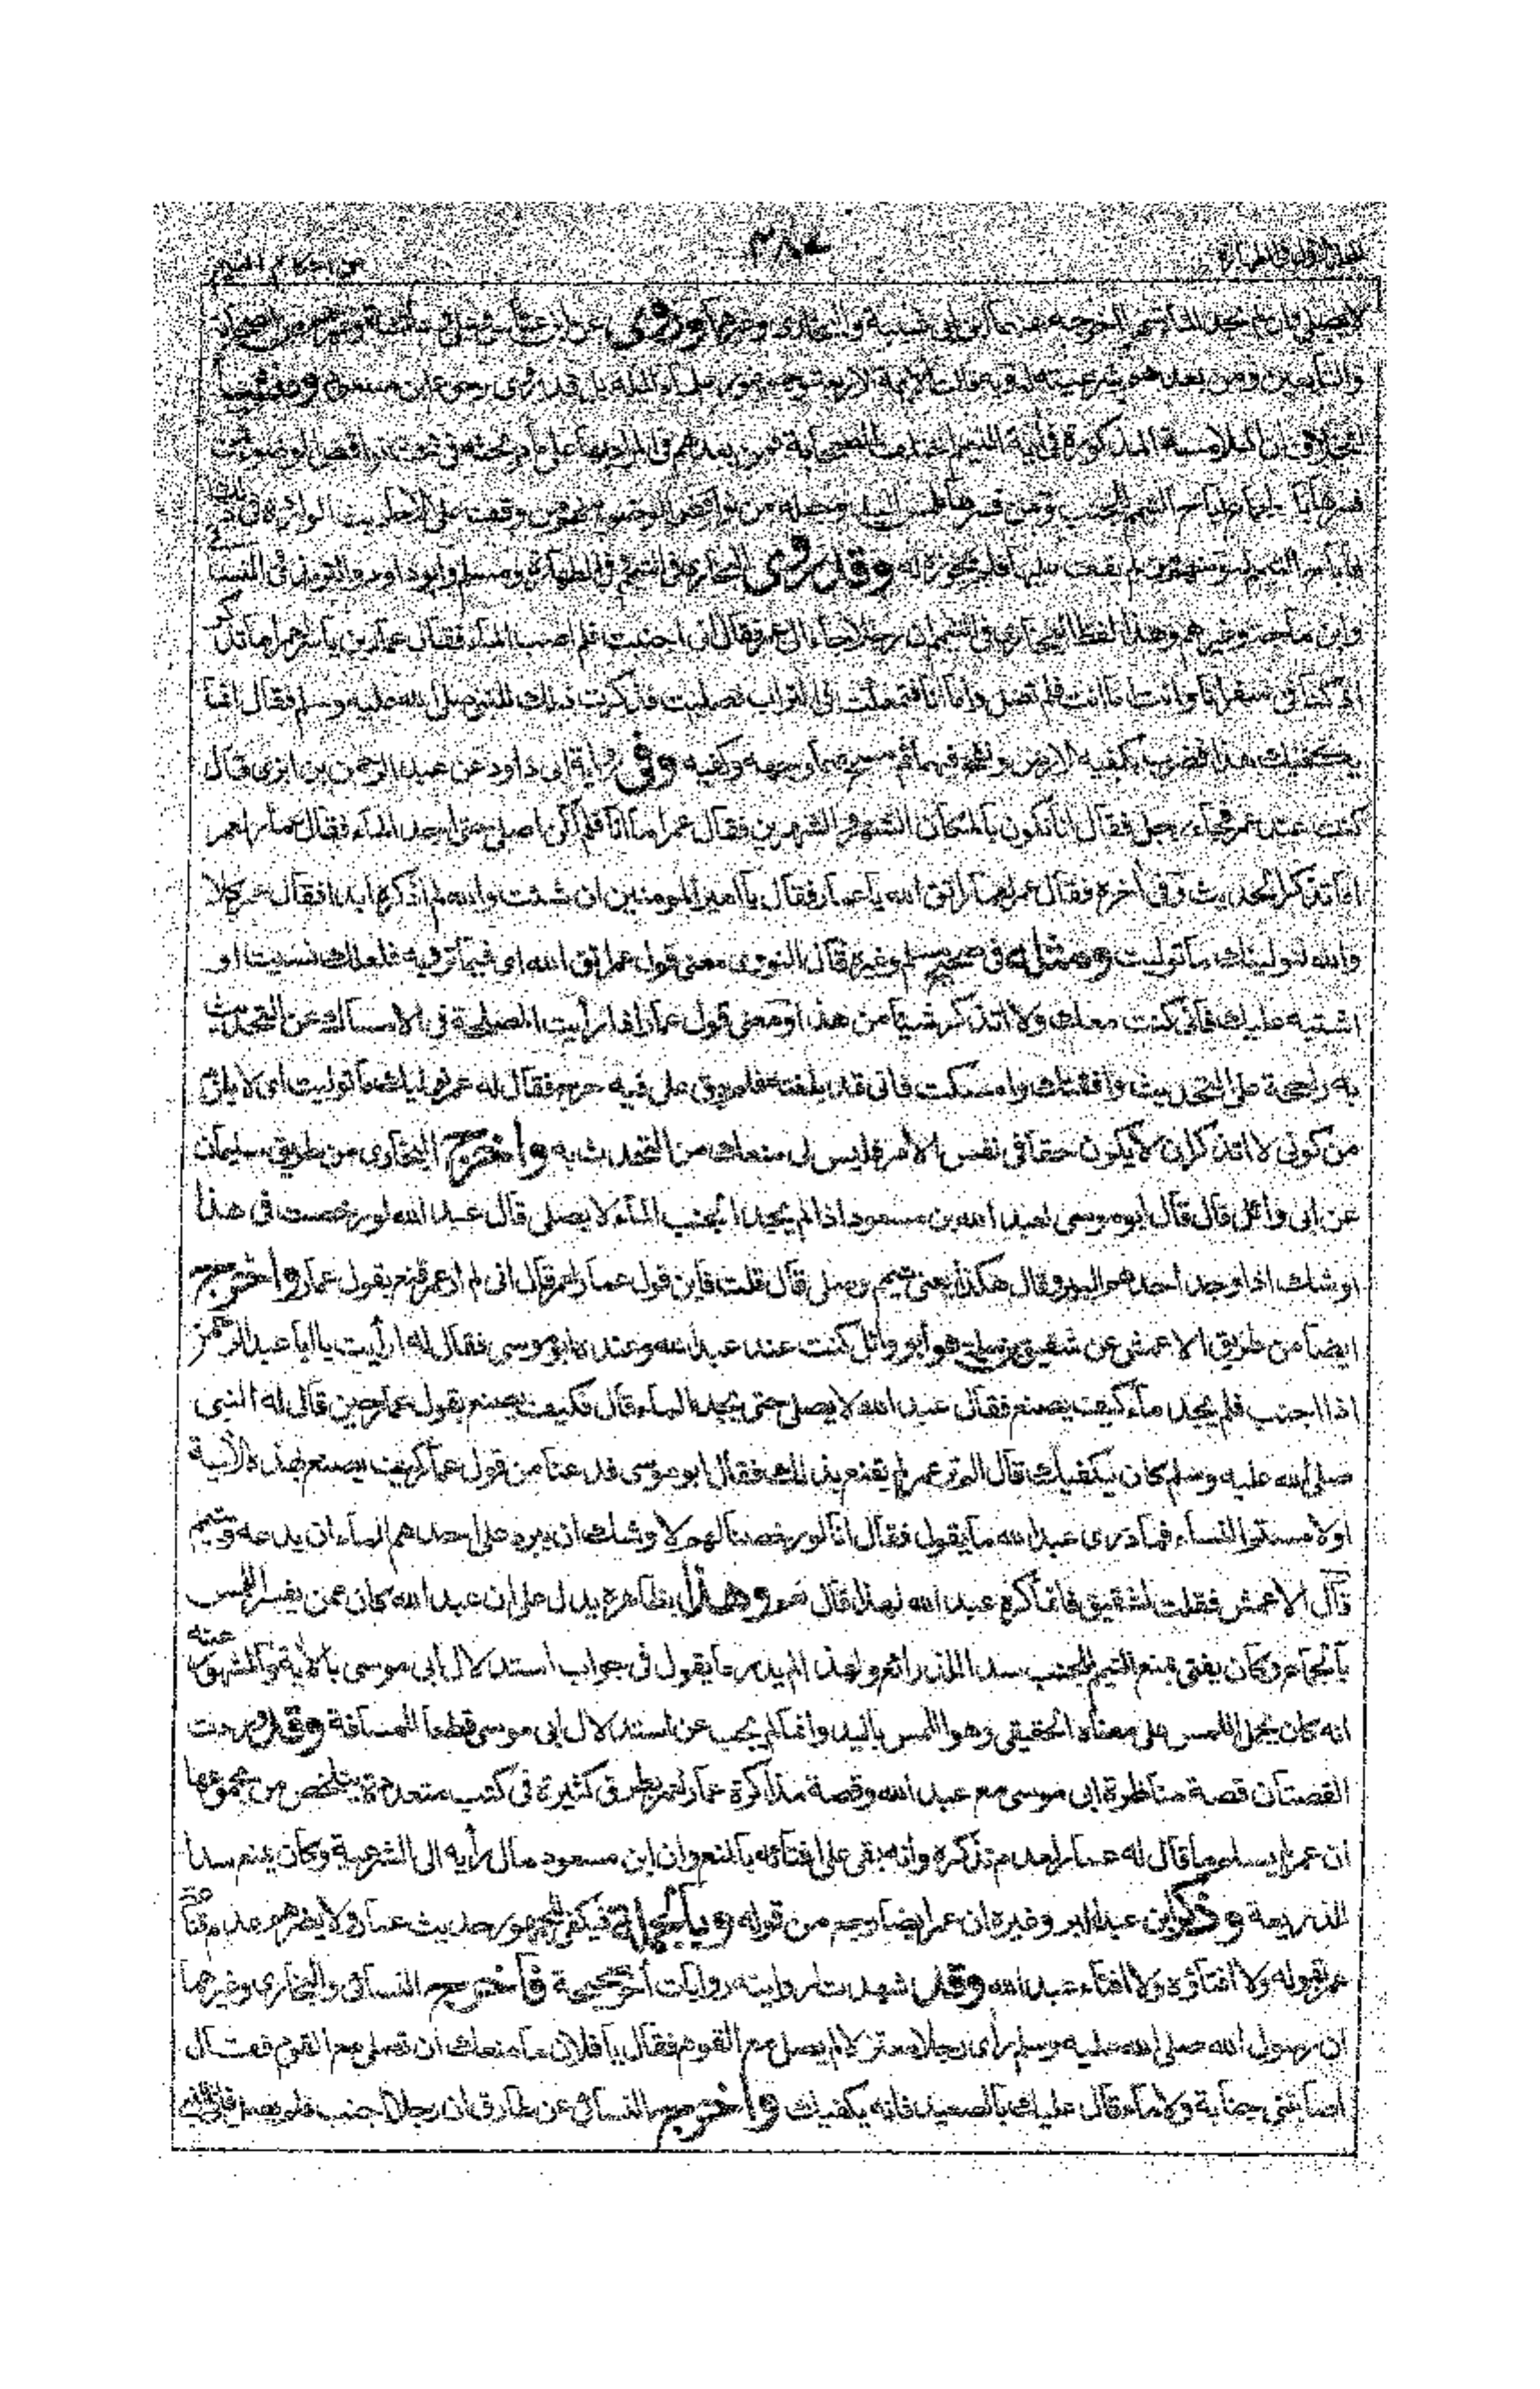 ٣٨٤
لا يصلي وان لم يجد الماء اخرجه عنهما ابن ابي شيبة والبخاري وغيرهما وروى عن
والتابعين ومن بعدهم شرعيته قالت الائمة الاربعة بل قد روى رجوع ابن مسعود
الملامسة المذكورة في آية التيمم الصحابة ومن بعدهم في المراد بها على ما مر بحثه في بحث نواقض الوضوء
التيمم للجنب ومن فسرها بلمس اليد وجعله من نواقض الوضوء وقفت على الاحاديث الواردة في
ومنهم من لم يقف عليها فلم يجوزه له وقد روى البخاري في التيمم في الطهارة ومسلم وابو داود والترمذي والنسائي
وابن ماجة وغيرهم وهذا لفظ البخاري في التيمم ان رجلا جاء الى عمر فقال اني اجنبت فلم اصب الماء فقال عمار بن ياسر لعمر اما تذكر
انا كنا في سفر انا وانت اما انت فلم تصل واما انا فتمعكت في التراب فصليت فذكرت ذلك للنبي صلى الله عليه وسلم فقال انما
يكفيك هذا فضرب بكفيه الارض ونفخ فيهما ثم مسح بهما وجهه وكفيه وفي رواية ابي داود عن عبد الرحمن بن ابزى قال
كنت عند عمر فجاءه رجل فقال انا نكون بالمكان الشهر والشهرين فقال عمر اما انا فلم اكن اصلي حتى اجد الماء فقال عمار لعمر
اما تذكر الحديث وفي اخره فقال عمر لعمار اتق الله يا عمار فقال يا امير المومنين ان شئت والله لم اذكره ابدا فقال عمر كلا
والله لنولينك ما توليت ومثله في صحيح مسلم وغيره قال النووي معنى قول عمر اتق الله اي فيما ترويه فلعلك نسيت او
اشتبه عليك فاني كنت معك ولا اتذكر شيئا من هذا ومعنى قول عمار ان رأيت المصلحة في الامساك عن التحديث
به راجحة على التحديث وافقتك وامسكت فاني قد بلغته فلم يبق على فيه حرج فقال له عمر نوليك ما توليت اى لا يلزم
من كوني لا اتذكر ان لا يكون حقا في نفس الامر فليس لي منعك من التحديث به واخرج البخاري من طريق سليمان
عن ابي وائل قال قال ابو موسى لعبد الله بن مسعود اذا لم يجد الجنب الماء لا يصلي قال عبد الله لو رخصت في هذا
اوشك اذا وجد احدهم البرد قال هكذا يعني تيمم وصلى قال قلت فاين قول عمار لعمر قال اني لم ار عمر قنع بقول عمار واخرج
ايضا من طريق الاعمش عن شقيق بن سلمة هو ابو وائل كنت عند عبد الله وعنده ابو موسى فقال له ارأيت يا ابا عبد الرحمن
اذا اجنب فلم يجد ماء كيف يصنع فقال عبد الله لا يصلي حتى يجد الماء قال فكيف يصنع بقول عمار حين قال له النبي
صلى الله عليه وسلم كان يكفيك قال الم تر عمر لم يقنع بذلك فقال ابو موسى فدعنا من قول عمار كيف يصنع بهذه الآية
او لامستم النساء فما درى عبد الله ما يقول فقال انا لو رخصنا لهم لاوشك ان يبرد على احدهم الماء ان يدعه ويتيمم
قال الاعمش فقلت لشقيق فانما كره عبد الله لهذا قال نعم وهذا بظاهره يدل على ان عبد الله كان ممن يفسر اللمس
بالجماع وكان يفتي بمنع التيمم للجنب سدا للذرائع ولهذا لم يدر ما يقول في جواب استدلال ابي موسى بالآية والمشهور عنه
انه كان يحمل اللمس على معناه الحقيقي وهو اللمس باليد وانما لم يجب عن استدلال ابي موسى قطعا للمسافة وقد وردت
القصتان قصة مناظرة ابي موسى مع عبد الله وقصة مذاكرة عمار لعمر بطرق كثيرة في كتب متعددة يتلخص من مجموعها
ان عمر لم يسلم ما قال له عمار لعدم تذكره وانه بقى على افتائه بالمنع وان ابن مسعود مال رأيه الى الشرعية وكان يمنع سدا
للذريعة وذكر ابن عبد البر وغيره ان عمر ايضا رجع من قوله وبالجملة فيكفي للجمهور حديث عمار ولا يضرهم عدم قناعة
عمر بقوله ولا افتاؤه ولا افتاء عبد الله وقد شهدت لروايته روايات أخر صحيحة فاخرج النسائي والبخاري وغيرهما
ان رسول الله صلى الله عليه وسلم رأى رجلا معتزلا لم يصل مع القوم فقال يا فلان ما منعك ان تصلي مع القوم فقال
اصابتني جنابة ولا ماء قال عليك بالصعيد فانه يكفيك واخرج النسائي عن طارق ان رجلا اجنب فلم يصل فاتى